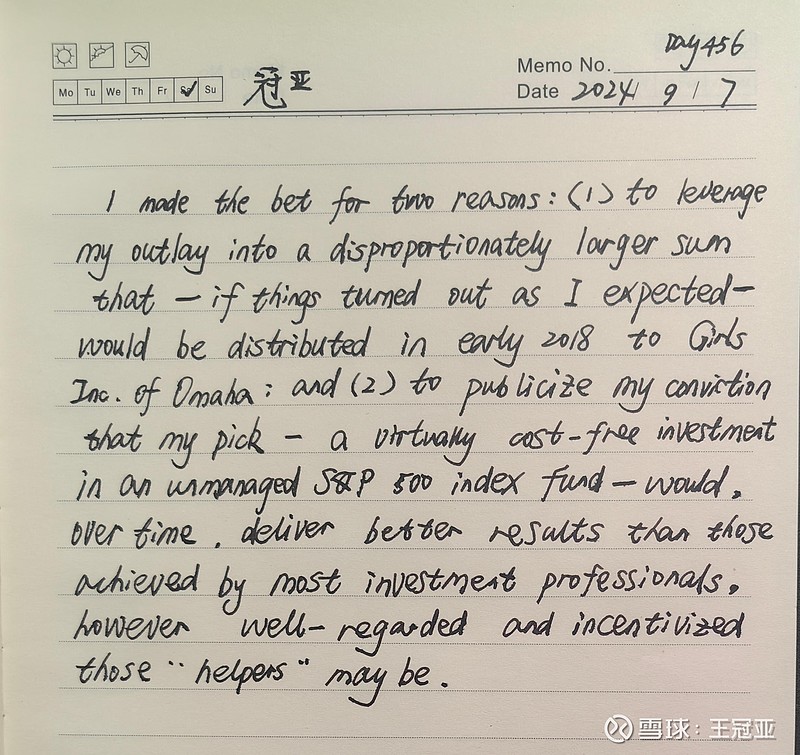 Day 456
Memo No.
Mo Tu We Th Fr Sa Su
冠亚
Date 2024 / 9 / 7
I made the bet for two reasons: (1) to leverage
my outlay into a disproportionately larger sum
that – if things turned out as I expected –
would be distributed in early 2018 to Girls
Inc. of Omaha; and (2) to publicize my conviction
that my pick – a virtually cost-free investment
in an unmanaged S&P 500 index fund – would,
over time, deliver better results than those
achieved by most investment professionals,
however well-regarded and incentivized
those "helpers" may be.
雪球:王冠亚